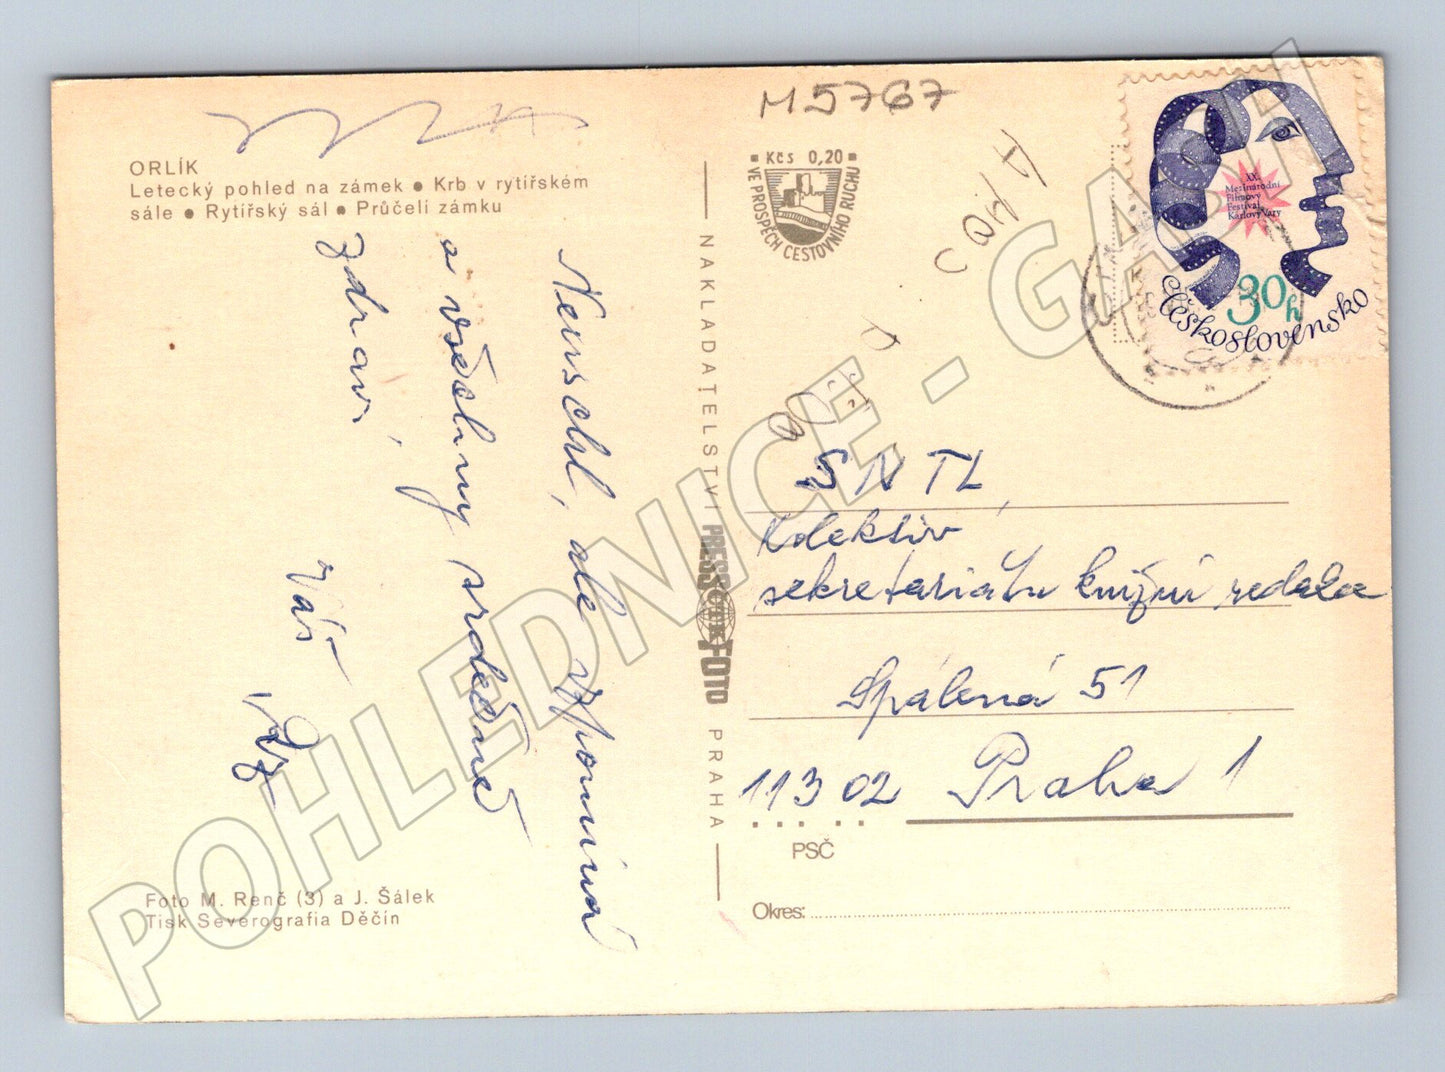 M5767
ORLÍK
Letecký pohled na zámek ● Krb v rytířském
sále ● Rytířský sál ● Průčelí zámku
Kčs 0,20
VE PROSPĚCH CESTOVNÍHO RUCHU
XX.
Mezinárodní
Filmový
Festival
Karlovy Vary
30h
Československo
ale vzpomíná
a všechny srdečně
zdraví
Váš
NAKLADATELSTVÍ PRESSFOTO PRAHA
SNTL,
Kolektiv
sekretariátu knižní redakce
Spálená 51
113 02 Praha 1
PSČ
Okres:
Foto M. Renč (3) a J. Šálek
Tisk Severografia Děčín
POHLEDNICE - GABISH